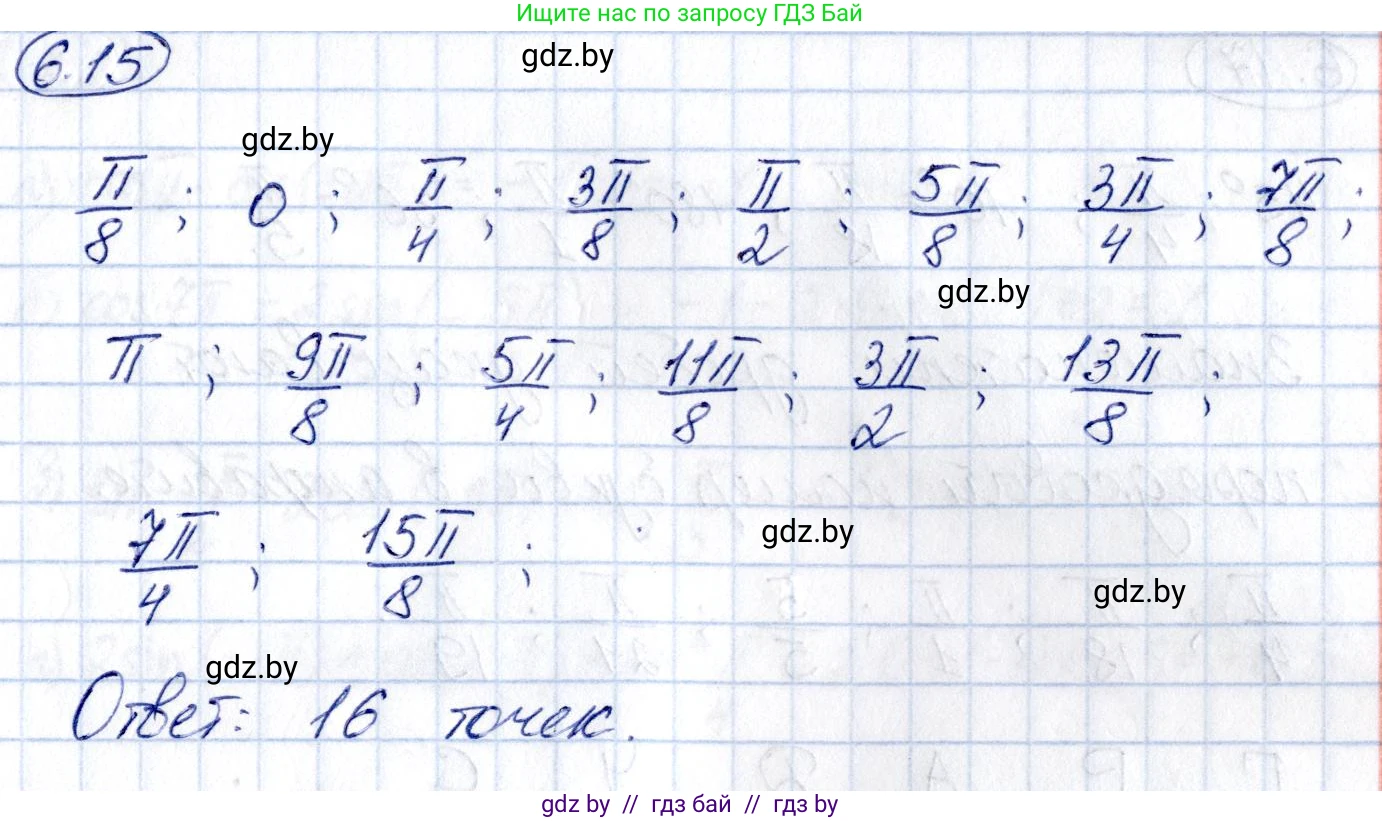 Ищите нас по запросу ГДЗ Бай
6.15
gdz.by
gdz.by
π/8 ; 0 ; π/4 ; 3π/8 ; π/2 ; 5π/8 ; 3π/4 ; 7π/8 ;
gdz.by
π ; 9π/8 ; 5π/4 ; 11π/8 ; 3π/2 ; 13π/8 ;
7π/4 ; 15π/8 ;
gdz.by
gdz.by
gdz.by
Ответ: 16 точек.
gdz by // гдз бай // гдз by